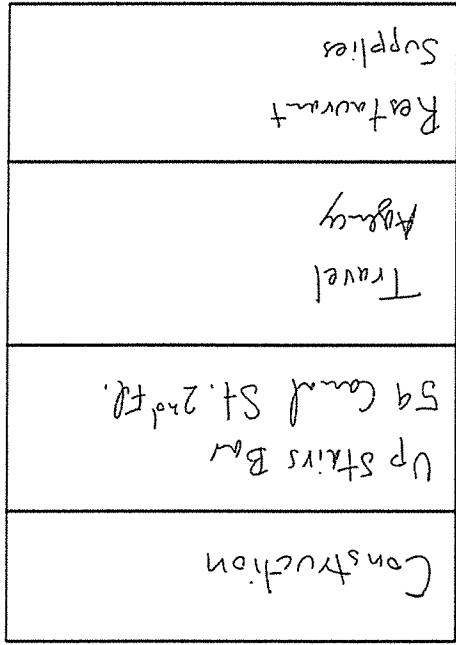 Construction
Up Stairs Bar
59 Canal St. 2nd Fl.
Travel
Agency
Restaurant
Supplies